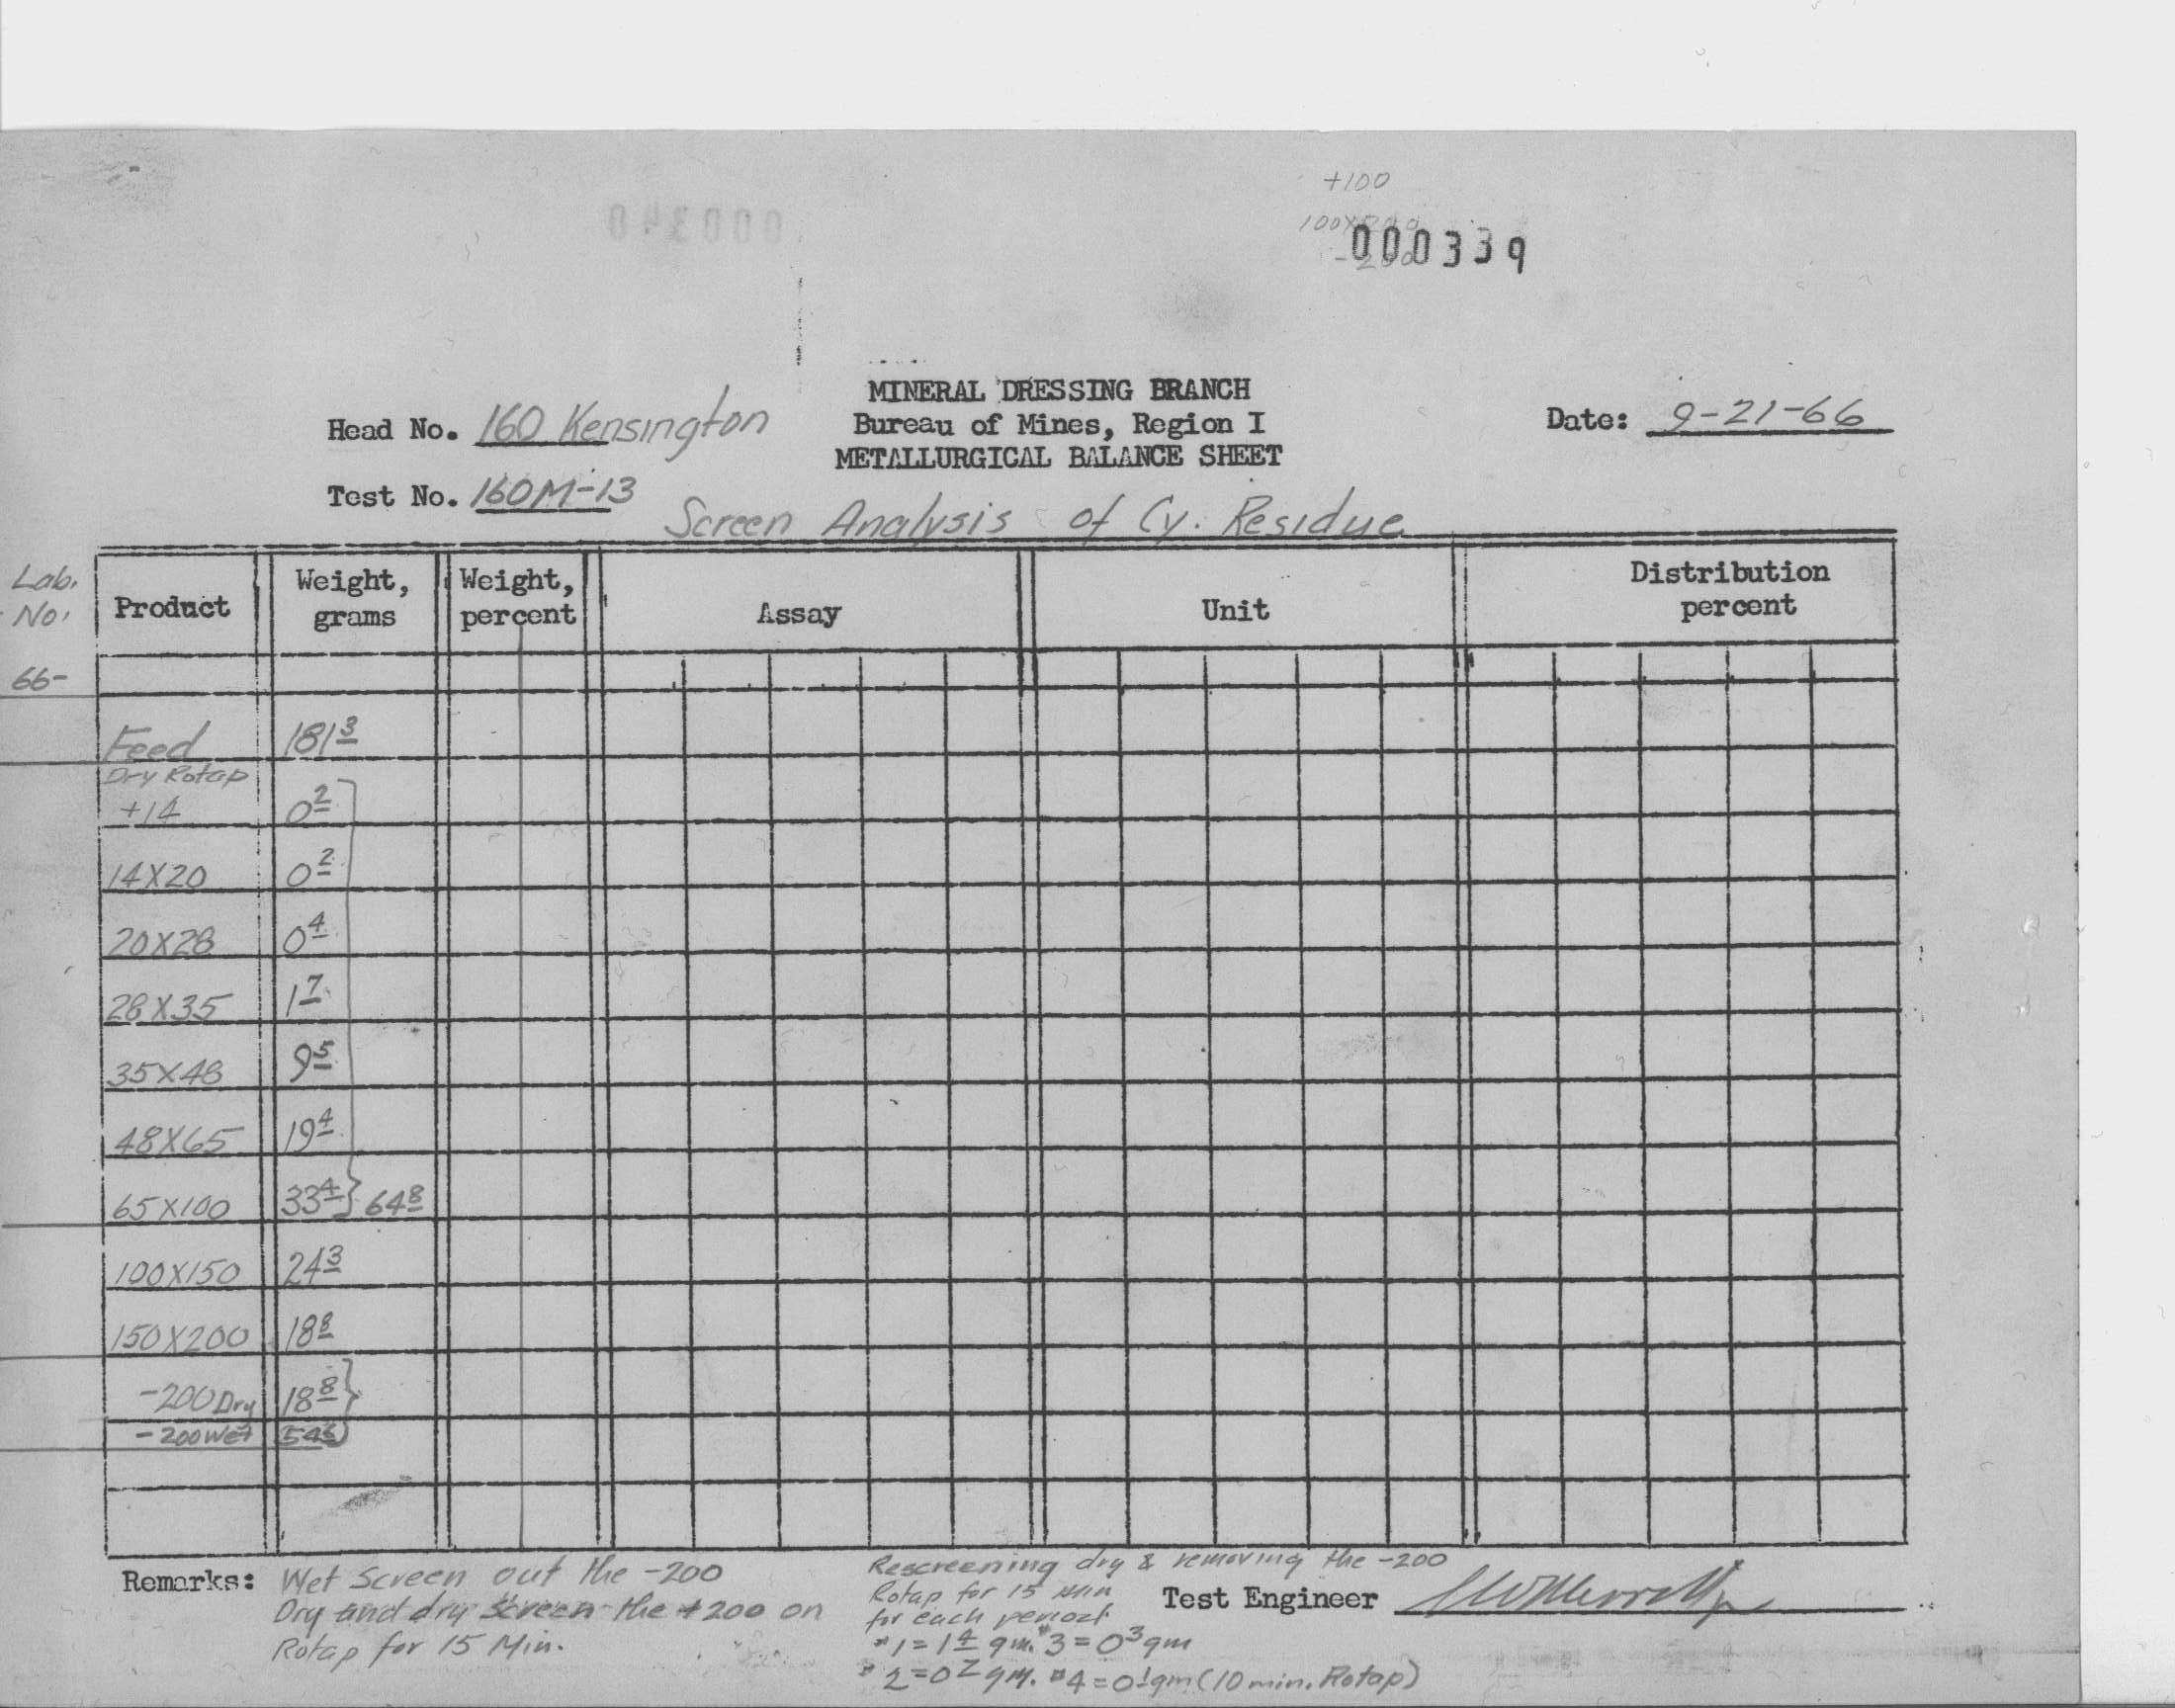 +100
000340
100X200
000339
-200
MINERAL DRESSING BRANCH
Head No. 160 Kensington
Bureau of Mines, Region I
Date: 9-21-66
METALLURGICAL BALANCE SHEET
Test No. 160M-13
Screen Analysis of Cy. Residue
Lab. No.
Product
Weight, grams
Weight, percent
Assay
Unit
Distribution percent
66-
Feed 181 3
Dry Rotap
+14 0 2
14X20 0 2
20X28 0 4
28X35 1 7
35X48 9 5
48X65 19 4
65X100 33 4 } 64 8
100X150 24 3
150X200 18 8
-200 Dry 18 8 }
-200 Wet
Remarks: Wet Screen out the -200
Dry and dry screen the +200 on
Rotap for 15 Min.
Rescreening dry & removing the -200
Rotap for 15 min
for each period
#1 = 1 4 gm. #3 = 0 3 gm
#2 = 0 2 gm. #4 = 0 1 gm (10 min. Rotap)
Test Engineer